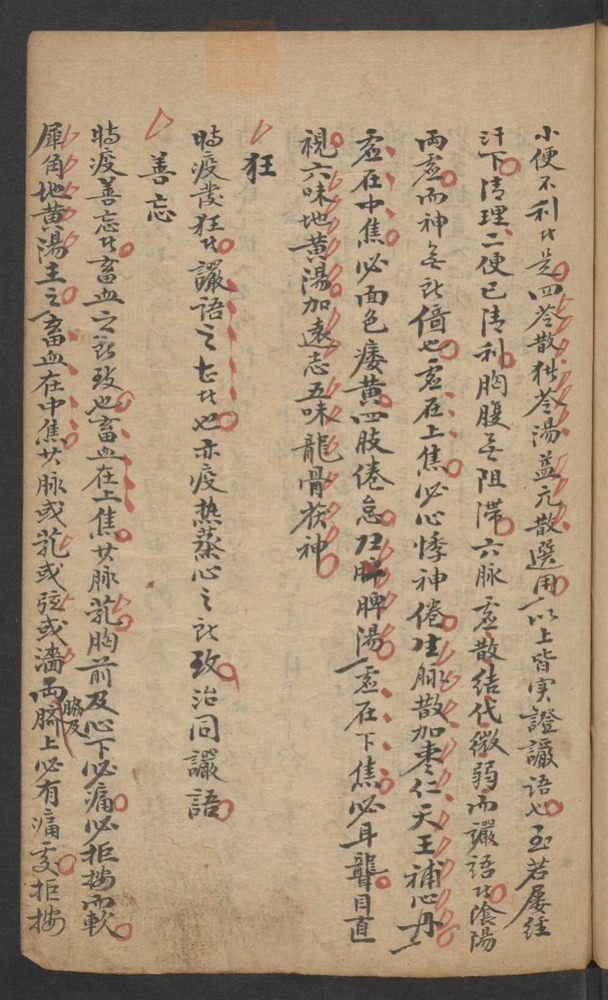 小便不利者是四苓散猪苓湯益元散選用以上皆实證讝语也至若屡经
汗下清理二便已清利胸腹无阻滞六脉虚散结代微弱而讝语者陰陽
两虚而神无所倚也虚在上焦必心悸神倦生脉散加枣仁天王補心丹
虚在中焦必面色痿黄四肢倦怠归脾湯虚在下焦必耳聾目直
視六味地黄湯加遠志五味龍骨茯神
狂
時疫發狂者讝语之甚者也亦疫热蒸心之所致治同讝語
善忘
時疫善忘者畜血之所致也畜血在上焦其脉芤胸前及心下必痛必拒按而軟
犀角地黄湯主之畜血在中焦其脉或芤或弦或濇两脇及脐上必有痛处拒按